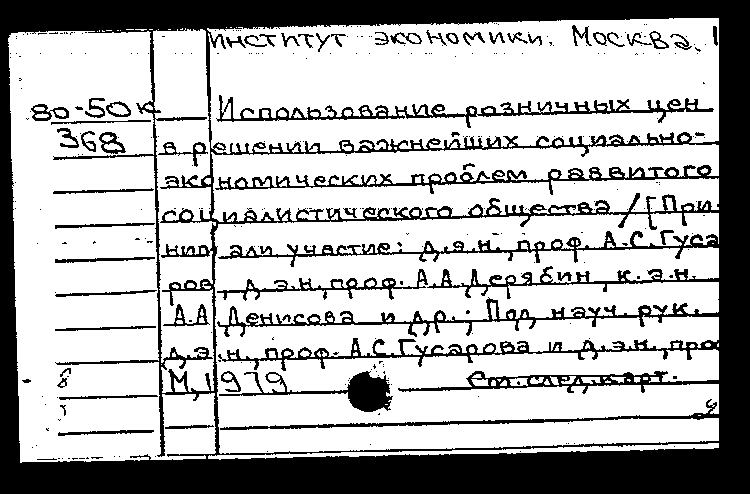 ИНСТИТУТ ЭКОНОМИКИ. МОСКВА.
80-50к Использование розничных цен
368 в решении важнейших социально-
экономических проблем развитого
социалистического общества / [При-
нимали участие: д.э.н., проф. А.С. Гуса
ров, д.э.н., проф. А.А. Дерябин, к.э.н.
А.А. Денисова и др.; Под науч. рук.
д.э.н., проф. А.С. Гусарова и д.э.н., про
М., 1979 См. след. карт.